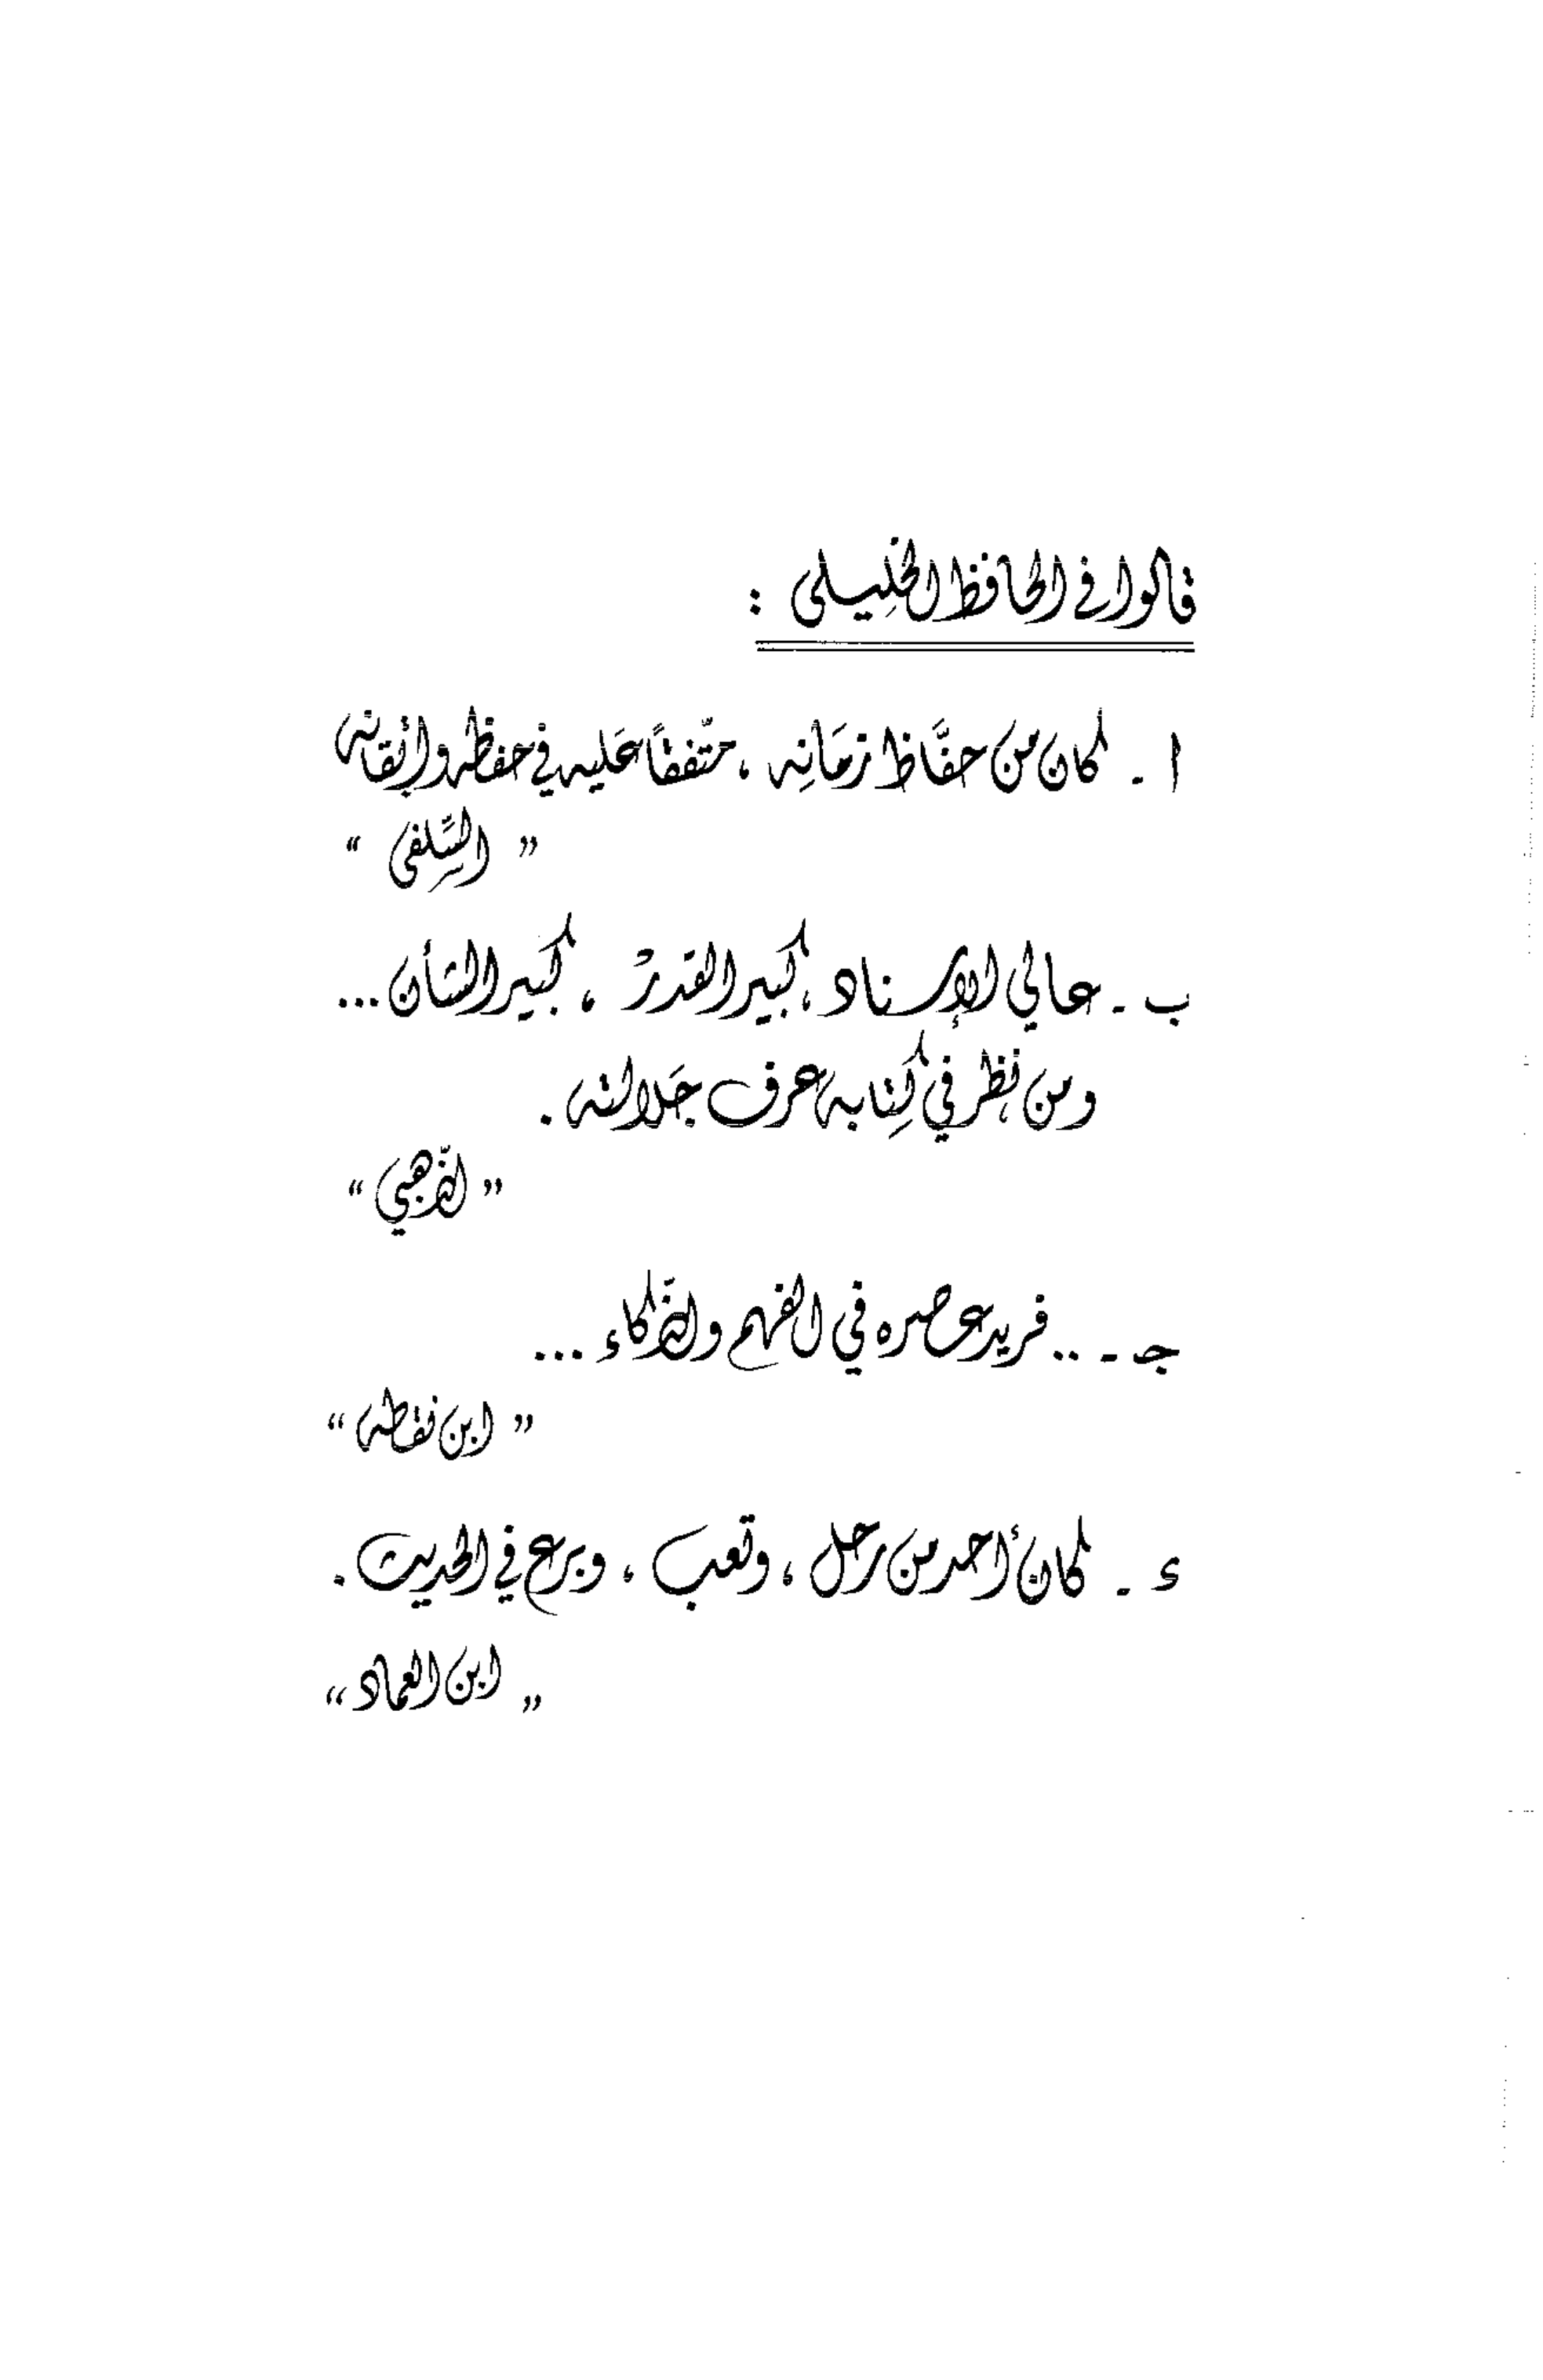 قالوا في الحافظ الخليلي :
ا - كان من حفَّاظ زمَانِه ، متّفقاً عَليه في حفظه وإتقانه
" السِّلفي "
ب - عالي الإسناد ، كبير القدر ، كبير الشأن ...
ومن نظر في كِتابه عرف جَلالته .
" الذّهبي "
جـ - .. فريد عصره في الفهم والذّكاء ...
" ابن نقطه "
د - كان أحد من رحل ، وتعب ، وبرع في الحديث .
" ابن العماد "